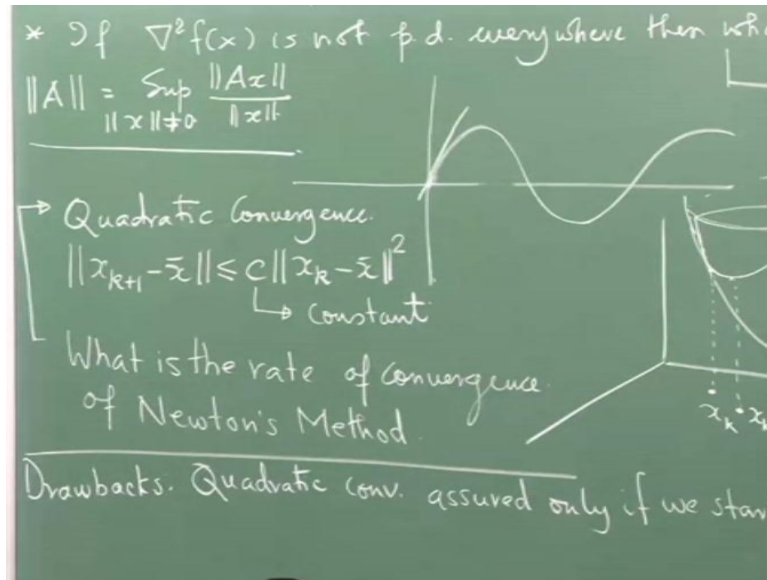 * If ∇²f(x) is not p.d. everywhere then
||A|| = Sup ||x||≠0 ||Ax|| / ||x||
→ Quadratic Convergence.
||x_{k+1} - x̄|| ≤ c ||x_k - x̄||²
↳ constant
What is the rate of convergence
of Newton's Method.
x_k
Drawbacks. Quadratic conv. assured only if we